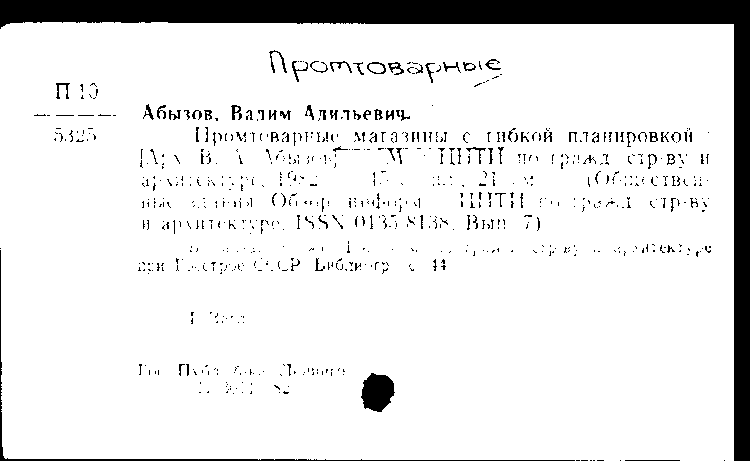 Промтоварные
П 10
5325
Абызов, Вадим Адильевич.
Промтоварные магазины с гибкой планировкой :
[Арх. В. А. Абызов] М. ЦНТИ по гражд. стр-ву и
архитектуре, 1982 45 с. ил., 21 см (Обществен-
ные здания Обзор. информ. ЦНТИ по гражд. стр-ву
и архитектуре, ISSN 0135-8138, Вып. 7)
стр-ву и архитектуре
при Госстрое СССР Библиогр. с. 44
Гос. Публ.
82